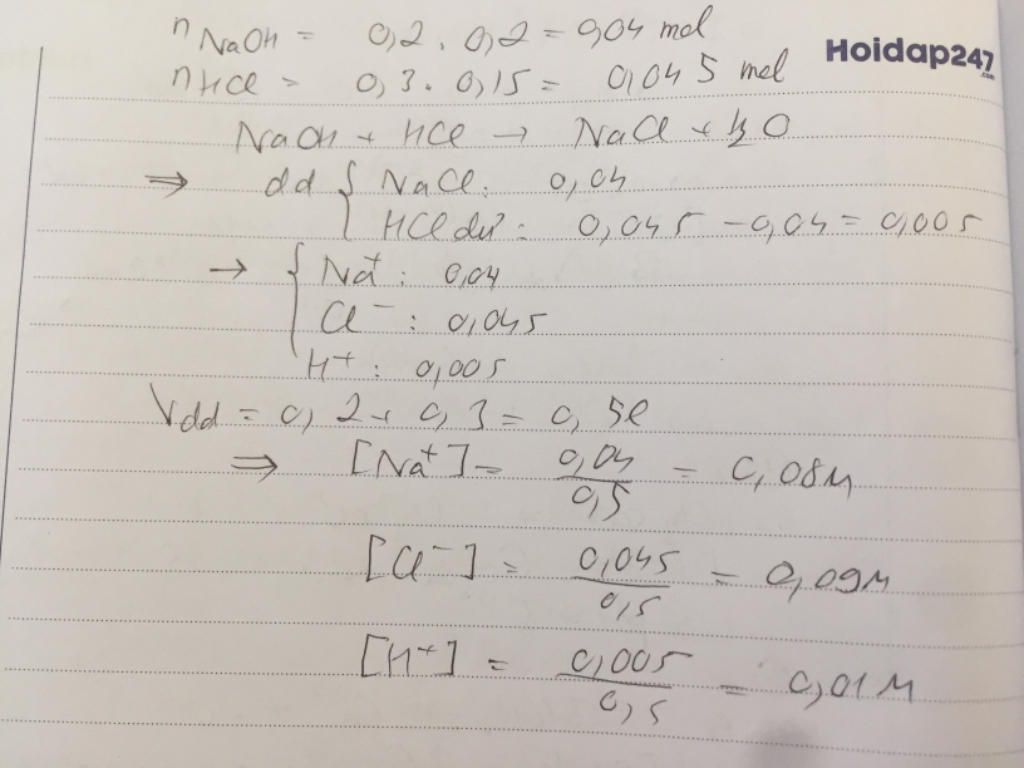 n NaOH = 0,2 . 0,2 = 0,04 mol
Hoidap247.com
nHCl = 0,3 . 0,15 = 0,045 mol
NaOH + HCl → NaCl + H2O
⇒ dd { NaCl : 0,04
HCl dư : 0,045 - 0,04 = 0,005
→ { Na+ : 0,04
Cl- : 0,045
H+ : 0,005
Vdd = 0,2 + 0,3 = 0,5l
⇒ [Na+] = 0,04/0,5 = 0,08M
[Cl-] = 0,045/0,5 = 0,09M
[H+] = 0,005/0,5 = 0,01M